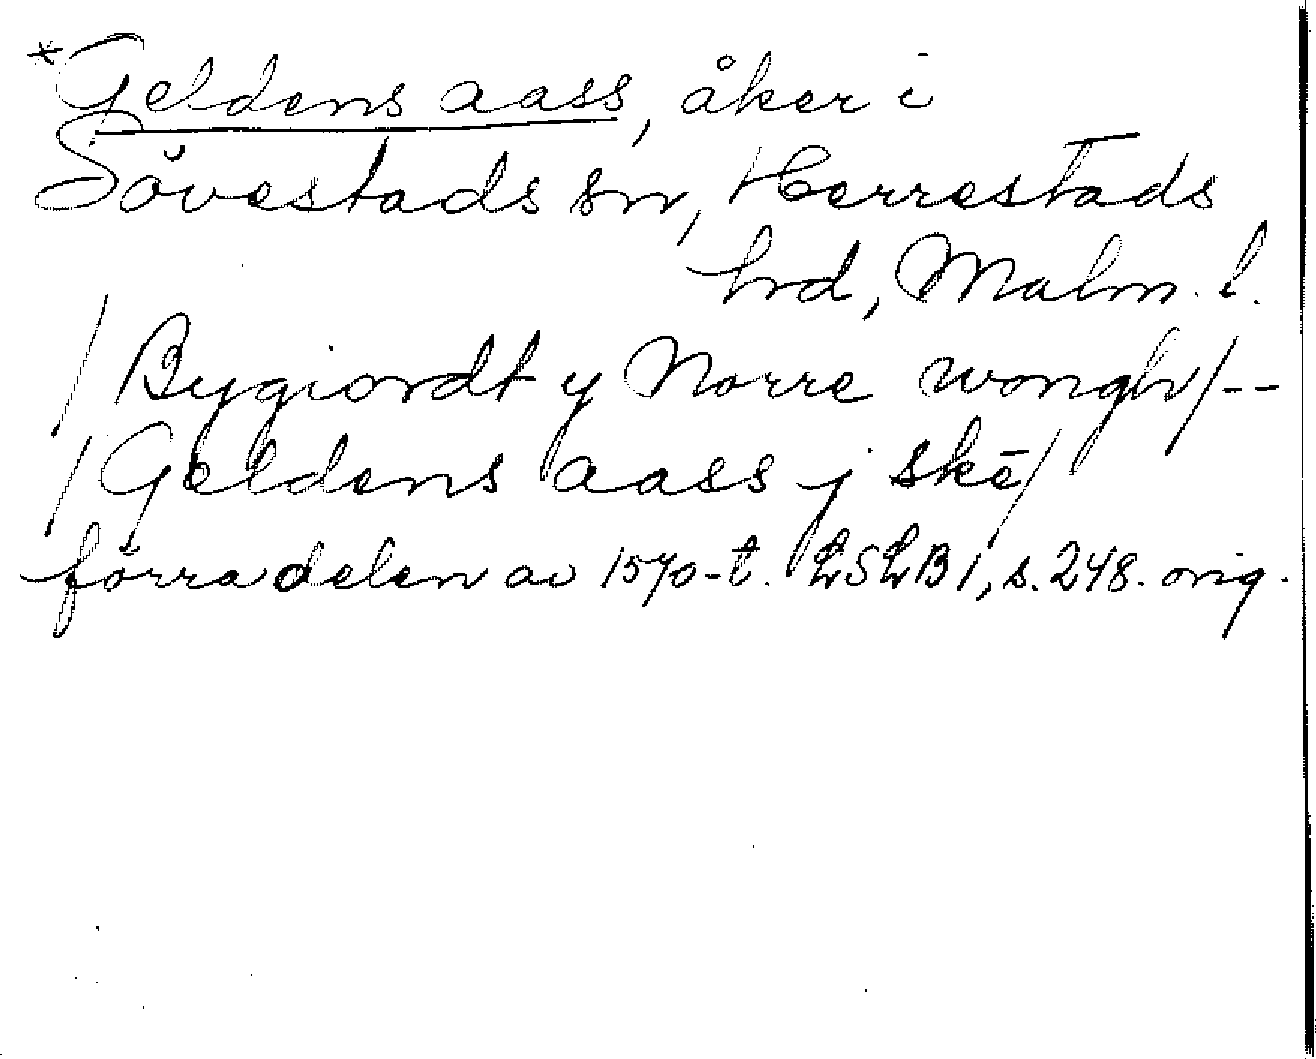 *Geldens aass, åker i
Sövestads sn, Herrestads
hrd, Malm. l.
/Bygiordt y Norre wongh/--
/Geldens aass j skē/
förra delen av 1570-t. LSLB 1, s. 248. orig.